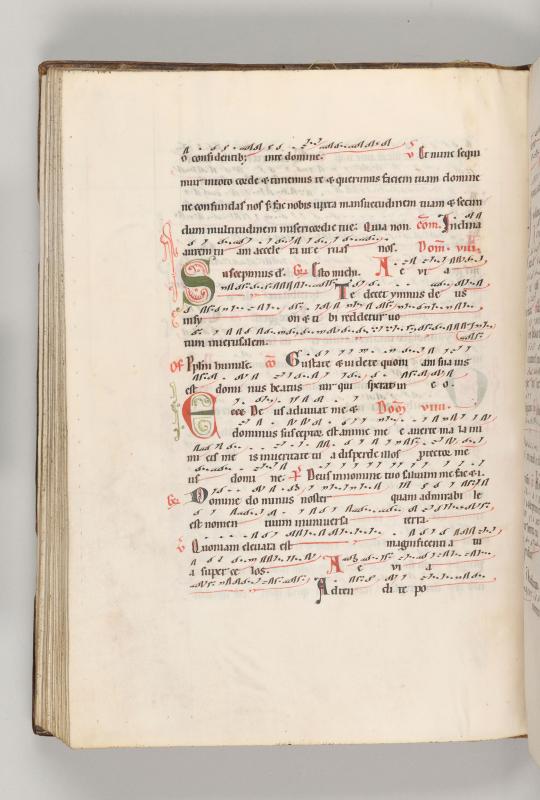 confidentib; in te domine. Et nunc sequi
mur in toto corde & timemus te & querimus faciem tuam domine
ne confundas nos s; fac nobis iuxta mansuetudinem tuam & secun
dum multitudinem misericordie tue. Quia non. com. Inclina
aurem tu am accele ra ut e ruas nos. Dom. viii.
Suscepimus d's. Esto michi. A e v i a
Te decet ymnus de us
in sy on & ti bi reddetur uo
tum in ierusalem.
Of Pplm humile. Gustate & uidete quoni am sua uis
est domi nus beatus uir qui sperat in e o.
Ecce De us adiuuat me & Dom viiii.
dominus susceptor est anime me e auerte ma la ini
mi cis me is in ueritate tu a disperde illos protector me
us domi ne. Deus in nomine tuo saluum me fac & i.
Domine do minus noster quam admirabi le
est nomen tuum in uniuersa terra.
Quoniam eleuata est magnificenti a tu
a super ce los. A e v i a
Adten di te po